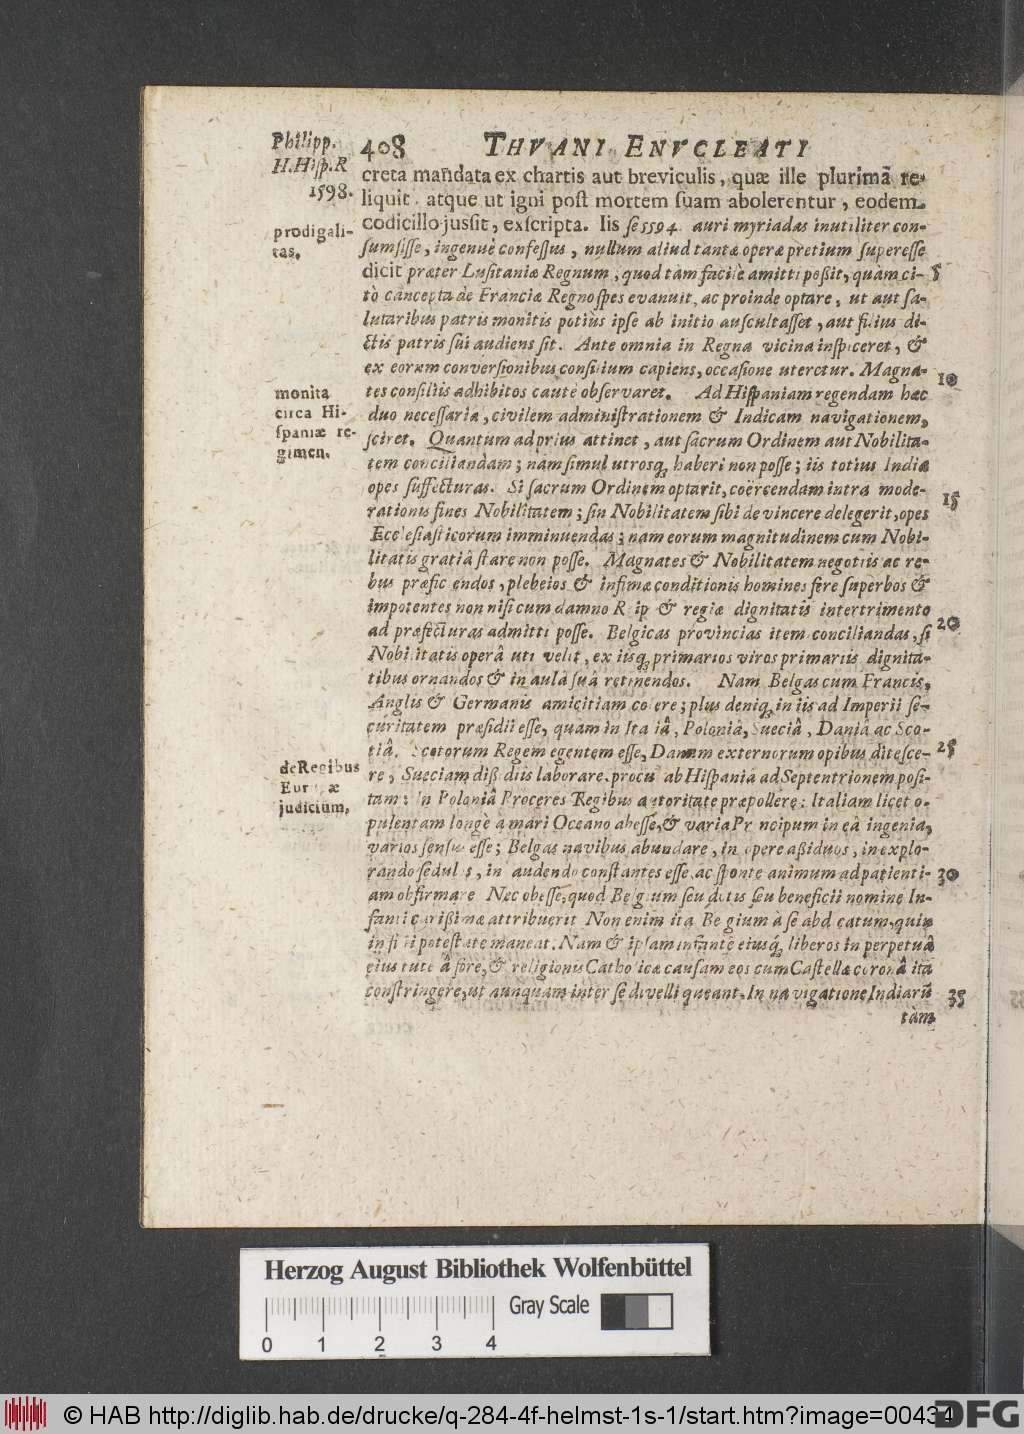 Philipp.
H.Hiſp.R
1598.
408 THVANI ENVCLEATI
creta mañdata ex chartis aut breviculis, quæ ille plurimã re-
liquit, atque ut igni poſt mortem ſuam abolerentur, eodem
codicillo juſsit, exſcripta. Iis ſe 5594. auri myriadas inutiliter con-
prodigali-
tas.
ſumſiſſe, ingenuè confeſſus, nullum aliud tantæ operæ pretium ſupereſſe
dicit præter Luſitaniæ Regnum, quod tàm facilè amitti poßit, quàm ci- 5
tò concepta de Franciæ Regno ſpes evanuit, ac proinde optare, ut aut ſa-
lutaribus patris monitis potiùs ipſe ab initio auſcultaſſet, aut filius di-
ctis patris ſui audiens ſit. Ante omnia in Regna vicina inſpiceret, &
ex eorum converſionibus conſilium capiens, occaſione uteretur. Magna- 10
tes conſiliis adhibitos cautè obſervaret. Ad Hiſpaniam regendam hæc
monita
circa Hi-
ſpaniæ re-
gimen.
duo neceſſaria, civilem adminiſtrationem & Indicam navigationem,
ſciret. Quantum ad prius attinet, aut ſacrum Ordinem aut Nobilita-
tem conciliandam; nam ſimul utrosq; haberi non poſſe; iis totius Indiæ
opes ſuffecturas. Si ſacrum Ordinem optarit, coërcendam intra mode- 15
rationis fines Nobilitatem; ſin Nobilitatem ſibi devincere delegerit, opes
Eccleſiaſticorum imminuendas; nam eorum magnitudinem cum Nobi-
litatis gratiâ ſtare non poſſe. Magnates & Nobilitatem negotiis ac re-
bus præficiendos, plebeios & infimæ conditionis homines ferè ſuperbos &
impotentes non niſi cum damno Reip. & regiæ dignitatis intertrimento 20
ad præfecturas admitti poſſe. Belgicas provincias item conciliandas, ſi
Nobilitatis operâ uti velit, ex iisq; primarios viros primariis dignita-
tibus ornandos & in aulâ ſuâ retinendos. Nam Belgas cum Francis,
Anglis & Germanis amicitiam colere; plus deniq; in iis ad Imperii ſe-
curitatem præſidii eſſe, quàm in Italiâ, Poloniâ, Sueciâ, Daniâ ac Sco- 25
tiâ. Scotorum Regem egentem eſſe, Danum externorum opibus diteſce-
deRegibus
Europæ
judicium,
re, Sueciam dißidiis laborare, procul ab Hiſpania ad Septentrionem poſi-
tam; in Poloniâ Proceres Regibus autoritate præpollere: Italiam licet o-
pulentam longè a mari Oceano abeſſe, & varia Principum in eâ ingenia,
varios ſenſus eſſe; Belgas navibus abundare, in opere aßiduos, in explo-
rando ſedulos, in audendo conſtantes eſſe, ac ſponte animum ad patienti- 30
am obfirmare. Nec obeſſe, quod Belgium ſeu dotis ſeu beneficii nomine In-
fanti carißimæ attribuerit. Non enim ita Belgium à ſe abdicatum, quin
in filii poteſtate maneat. Nam & ipſam infantẽ eiusq́; liberos in perpetuâ
eius tutelâ fore, & religionis Catholicæ cauſam eos cum Caſtellæ coronâ ita
conſtringere, ut nunquam inter ſe divelli queant. In navigatione Indiarũ 35
tàm
Herzog August Bibliothek Wolfenbüttel
Gray Scale
0 1 2 3 4
© HAB http://diglib.hab.de/drucke/q-284-4f-helmst-1s-1/start.htm?image=00434
DFG